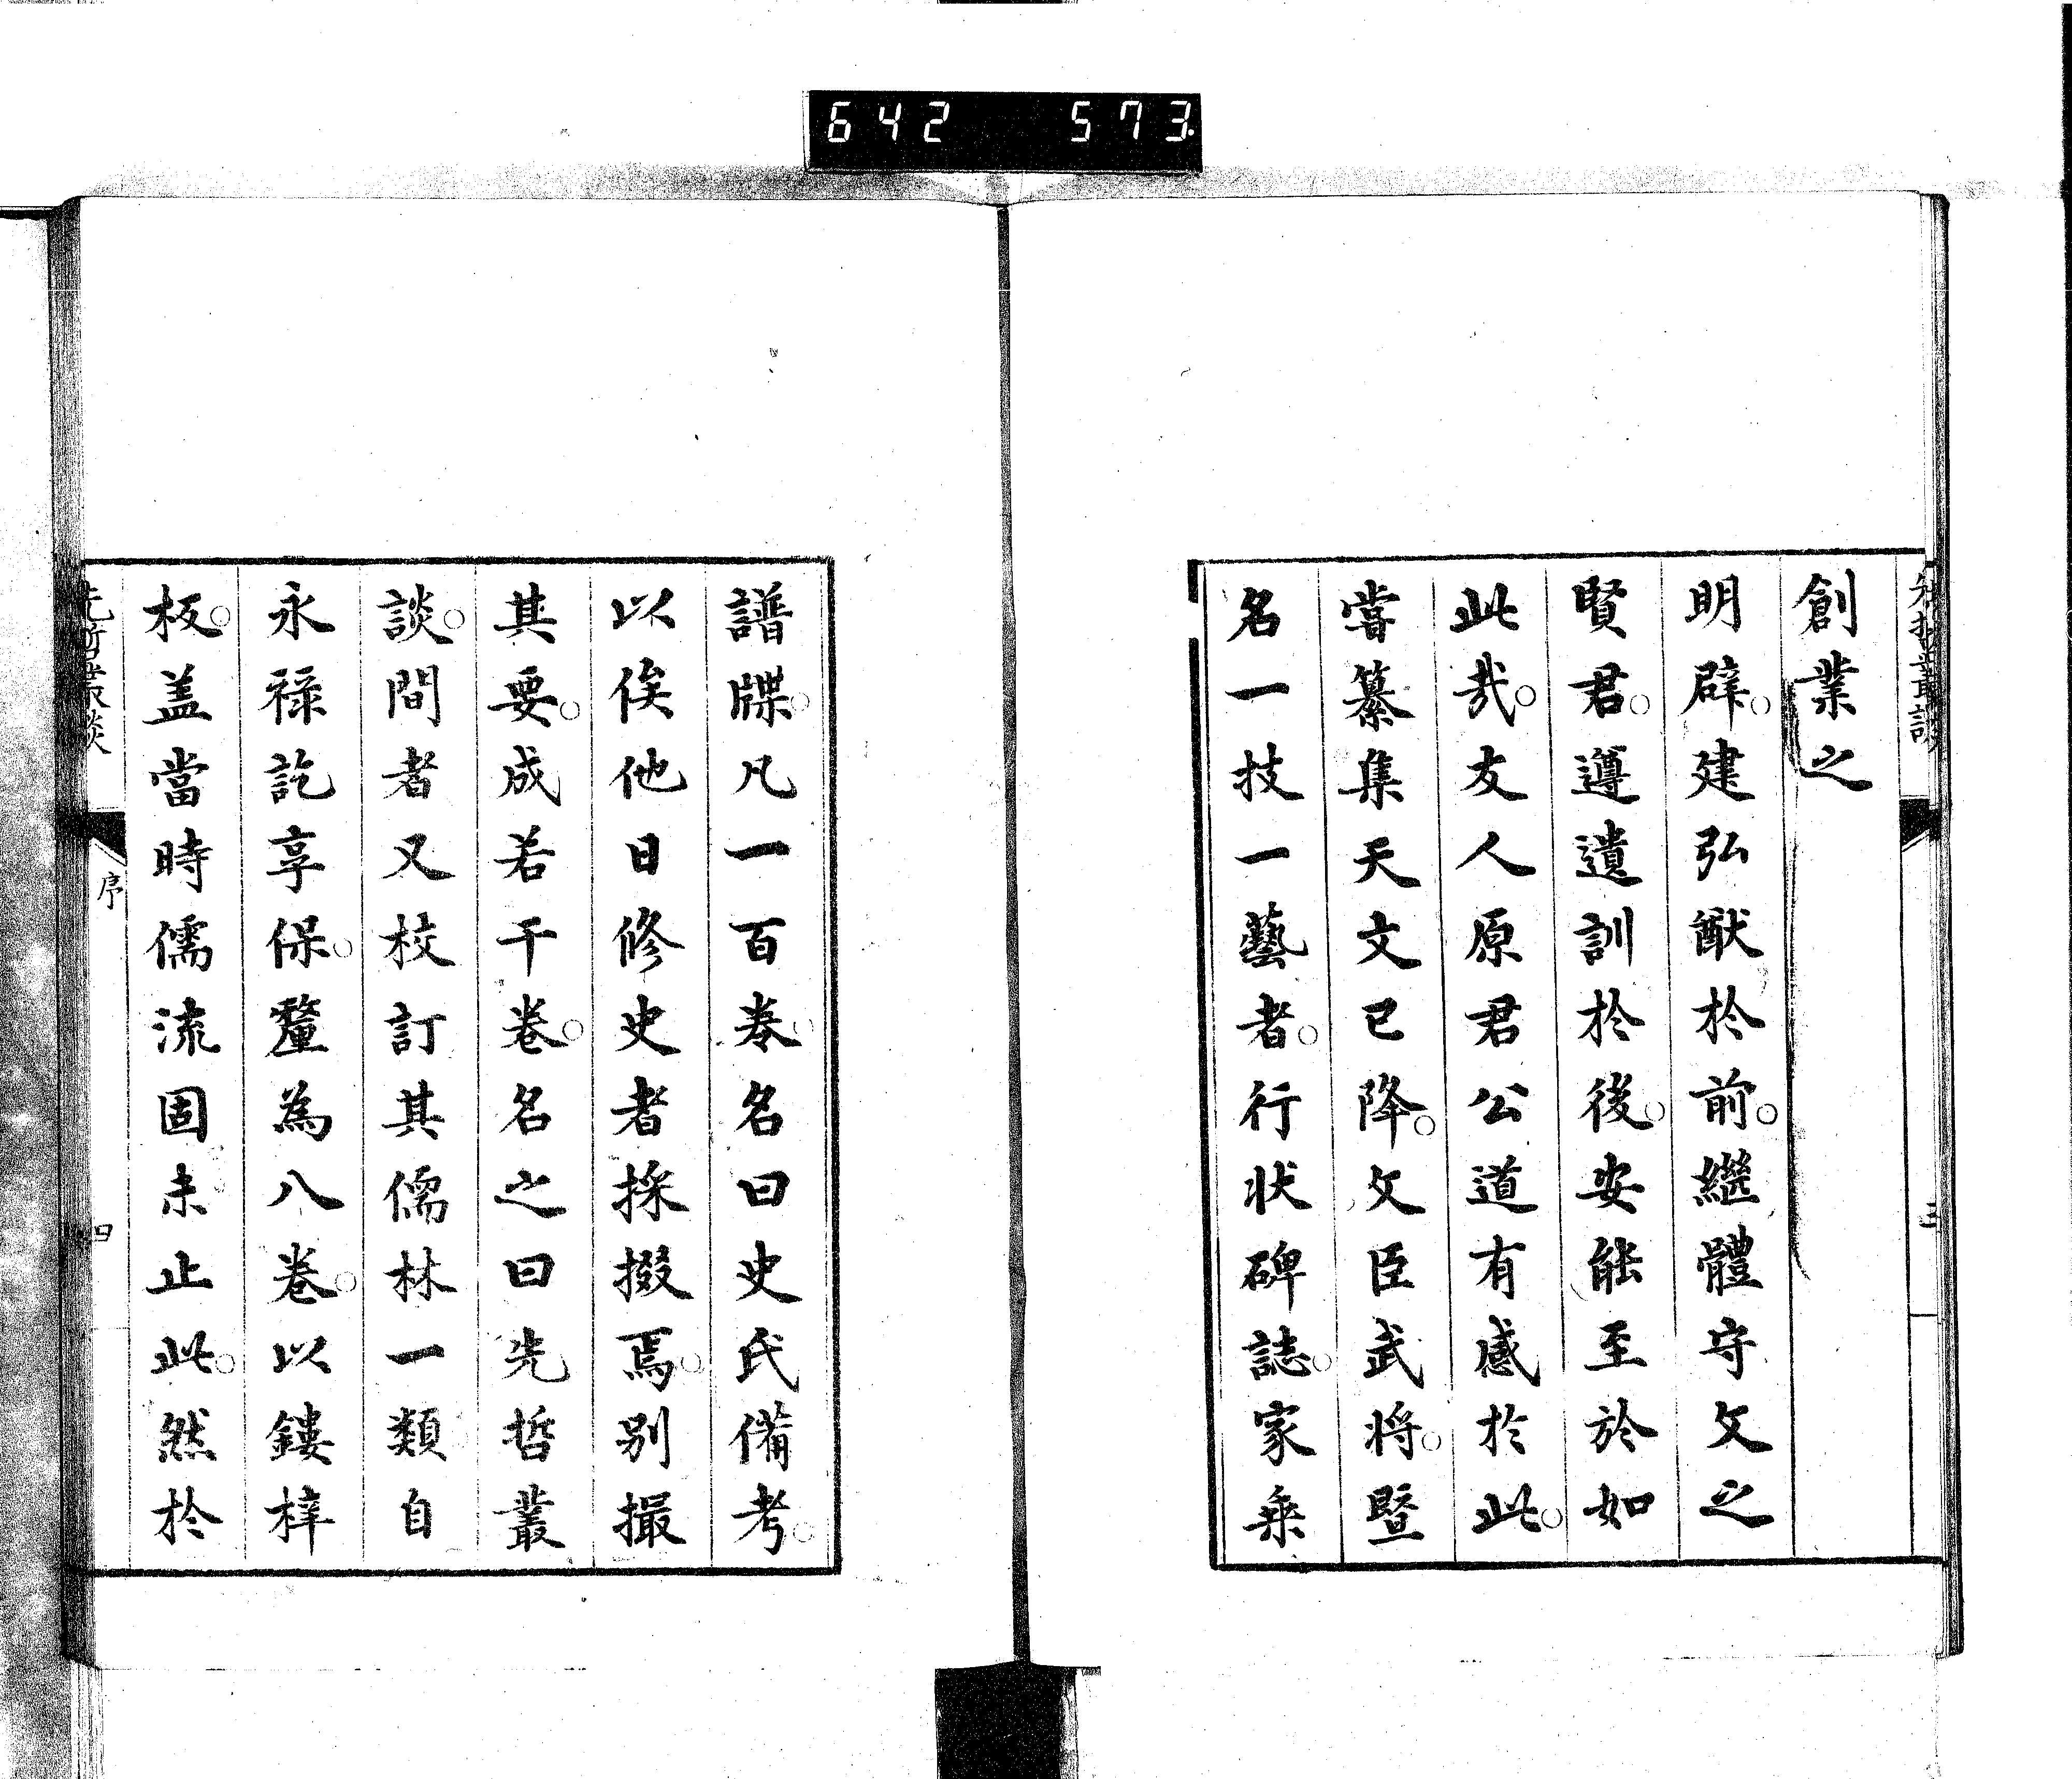 642 573.
先哲叢談
三
創業之
明辟。建弘猷於前。繼體守文之
賢君。遵遺訓於後。安能至於如
此哉。友人原君公道有感於此。
嘗纂集天文已降。文臣武將。暨
名一技一藝者。行狀碑誌。家乘
譜牒。凡一百卷。名曰史氏備考。
以俟他日修史者採掇焉。別撮
其要。成若干卷。名之曰先哲叢
談。間者又校訂其儒林一類自
永祿訖享保。釐為八卷。以鏤梓
板。盖當時儒流固未止此。然於
先哲叢談
序
四